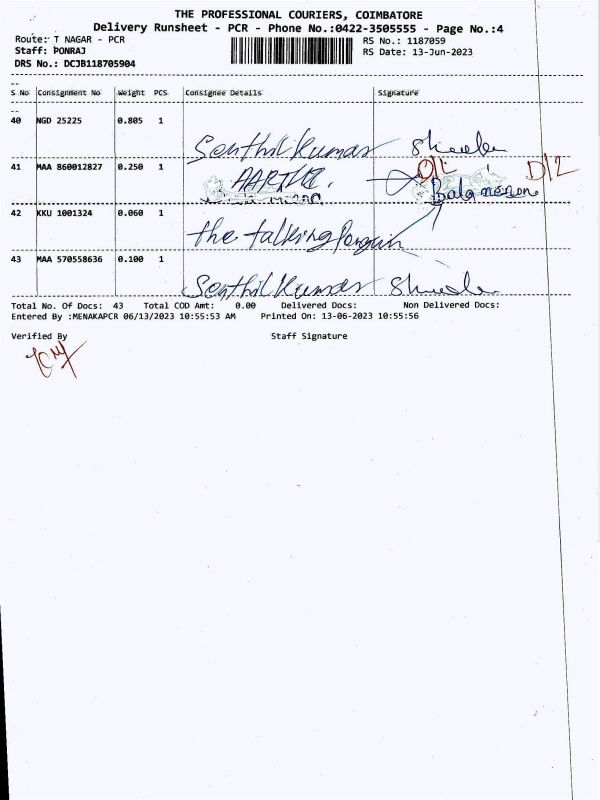 THE PROFESSIONAL COURIERS, COIMBATORE
Delivery Runsheet - PCR - Phone No.:0422-3505555 - Page No.:4
Route: T NAGAR - PCR RS No.: 1187059
Staff: PONRAJ RS Date: 13-Jun-2023
DRS No.: DCJB118705904
S No Consignment No Weight PCS Consignee Details Signature
40 NGD 25225 0.805 1
Senthil Kumar
41 MAA 860012827 0.250 1
D12
42 KKU 1001324 0.060 1
the talking
43 MAA 570558636 0.100 1
Senthil Kumar
Total No. Of Docs: 43 Total COD Amt: 0.00 Delivered Docs: Non Delivered Docs:
Entered By :MENAKAPCR 06/13/2023 10:55:53 AM Printed On: 13-06-2023 10:55:56
Verified By Staff Signature